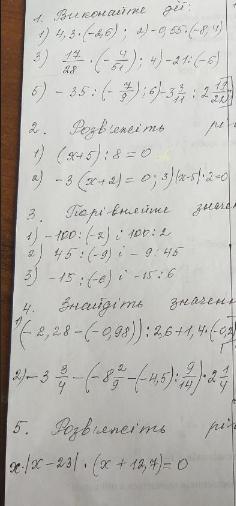 1. Виконайте дії:
1) 4,3·(-2,6); 2) -0,55·(-8,4)
3) 17/28·(-4/51); 4) -21:(-6)
5) -35:(-7/9); 6) -3 3/11 : 2
2. Розв'яжіть рі
1) (x+5):8=0
2) -3(x+2)=0; 3) |x-5|·2=0
3. Порівняйте значен
1) -100:(-2) і 100:2
2) 45:(-9) і -9:45
3) -15:(-6) і -15:6
4. Знайдіть значен
1) (-2,28-(-0,98)):2,6+1,4·(-0,2
2) -3 3/4-(-8 2/9-(-4,5):9/14)·2 1/4
5. Розв'яжіть рі
x·|x-23|·(x+12,7)=0